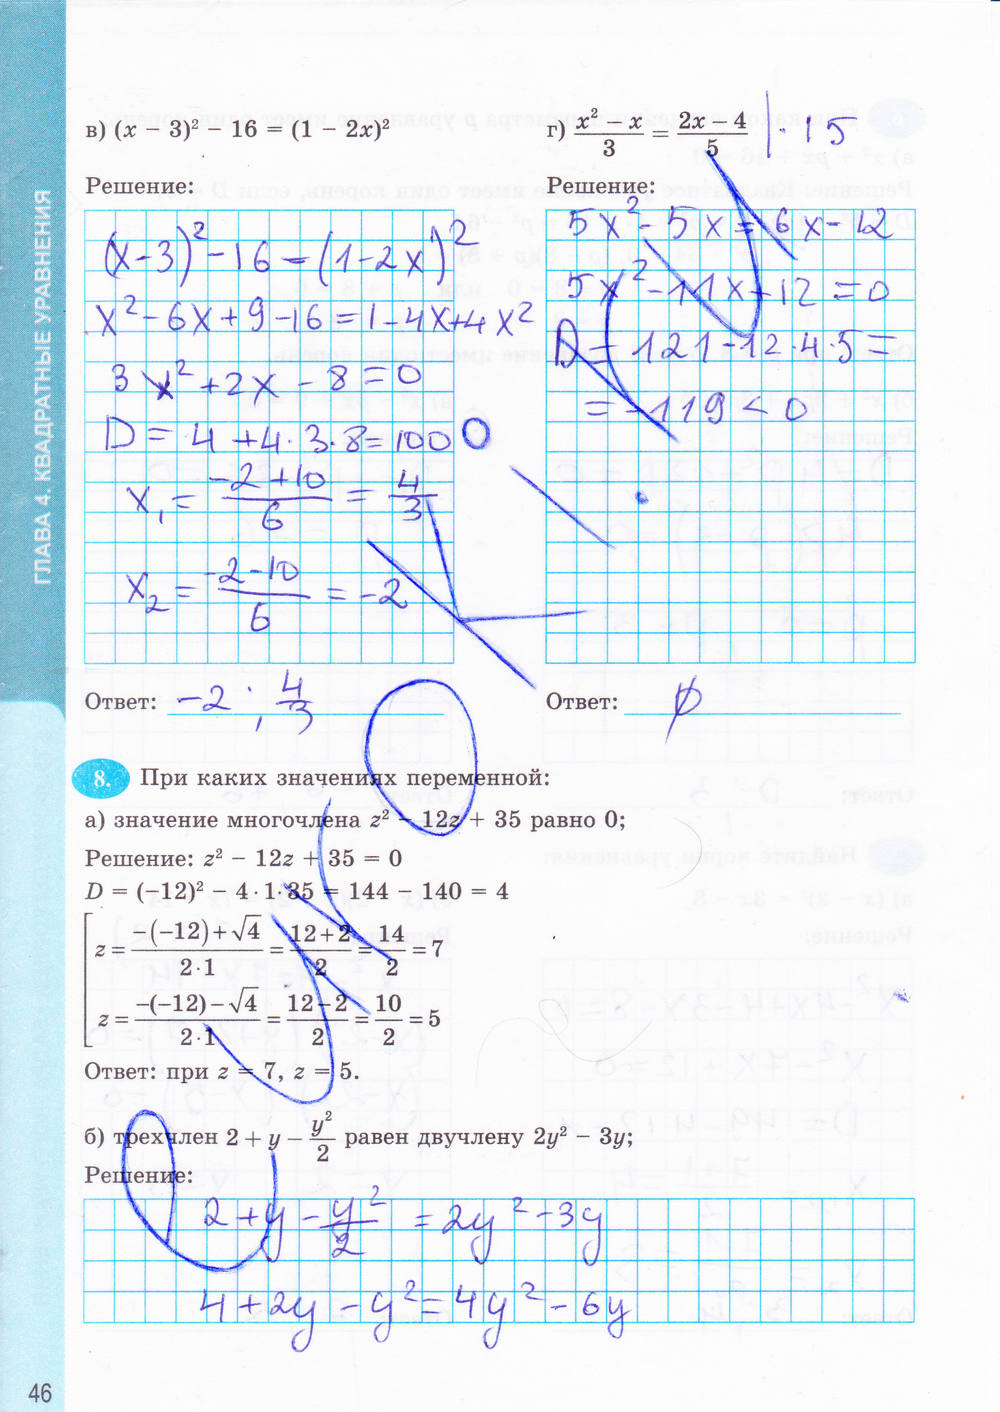 ГЛАВА 4. КВАДРАТНЫЕ УРАВНЕНИЯ
в) (x − 3)² − 16 = (1 − 2x)²
Решение:
(x−3)² −16 = (1−2x)²
x²−6x+9−16=1−4x+4x²
3x²+2x−8=0
D=4+4·3·8=100
x₁ = (−2+10)/6 = 4/3
x₂ = (−2−10)/6 = −2
Ответ: −2 ; 4/3
г) (x² − x)/3 = (2x − 4)/5 |·15
Решение:
5x²−5x=6x−12
5x²−11x+12=0
D=121−12·4·5=
=−119<0
Ответ: ∅
8. При каких значениях переменной:
а) значение многочлена z² − 12z + 35 равно 0;
Решение: z² − 12z + 35 = 0
D = (−12)² − 4·1·35 = 144 − 140 = 4
z = (−(−12)+√4)/(2·1) = (12+2)/2 = 14/2 = 7
z = (−(−12)−√4)/(2·1) = (12−2)/2 = 10/2 = 5
Ответ: при z = 7, z = 5.
б) трехчлен 2 + y − y²/2 равен двучлену 2y² − 3y;
Решение:
2+y−y²/2 = 2y²−3y
4+2y−y²=4y²−6y
46